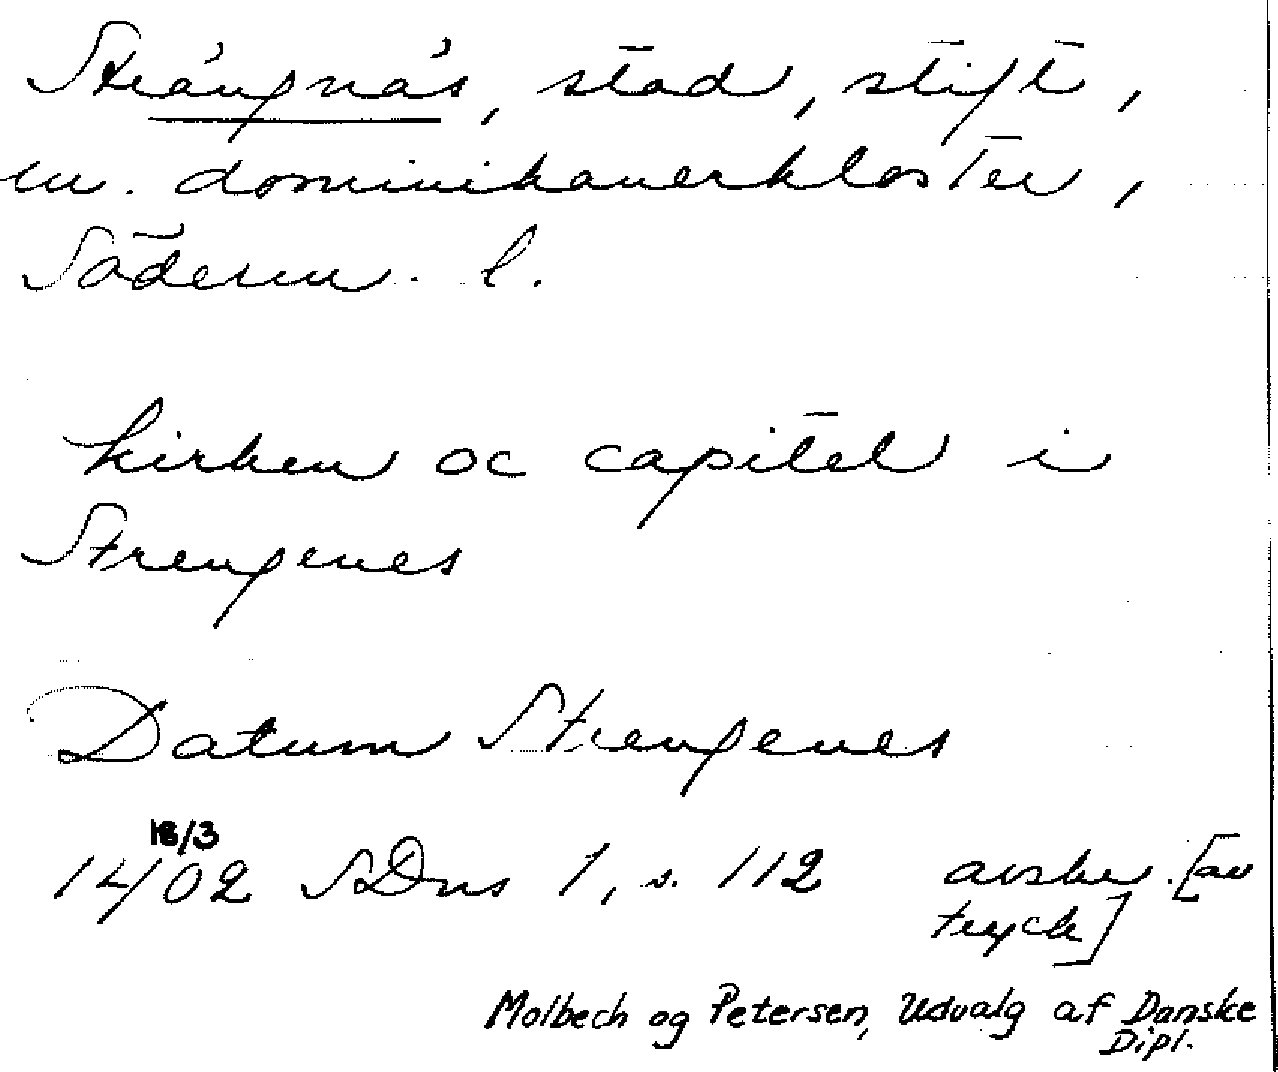 Strängnäs, stad, stift,
m. dominikanerkloster,
Söderm. l.
kirken oc capitel i
Strengenes
Datum Strengenes
18/3
14/02 SDns 1, s. 112 avskr. [av
tryck]
Molbech og Petersen, Udvalg af Danske
Dipl.